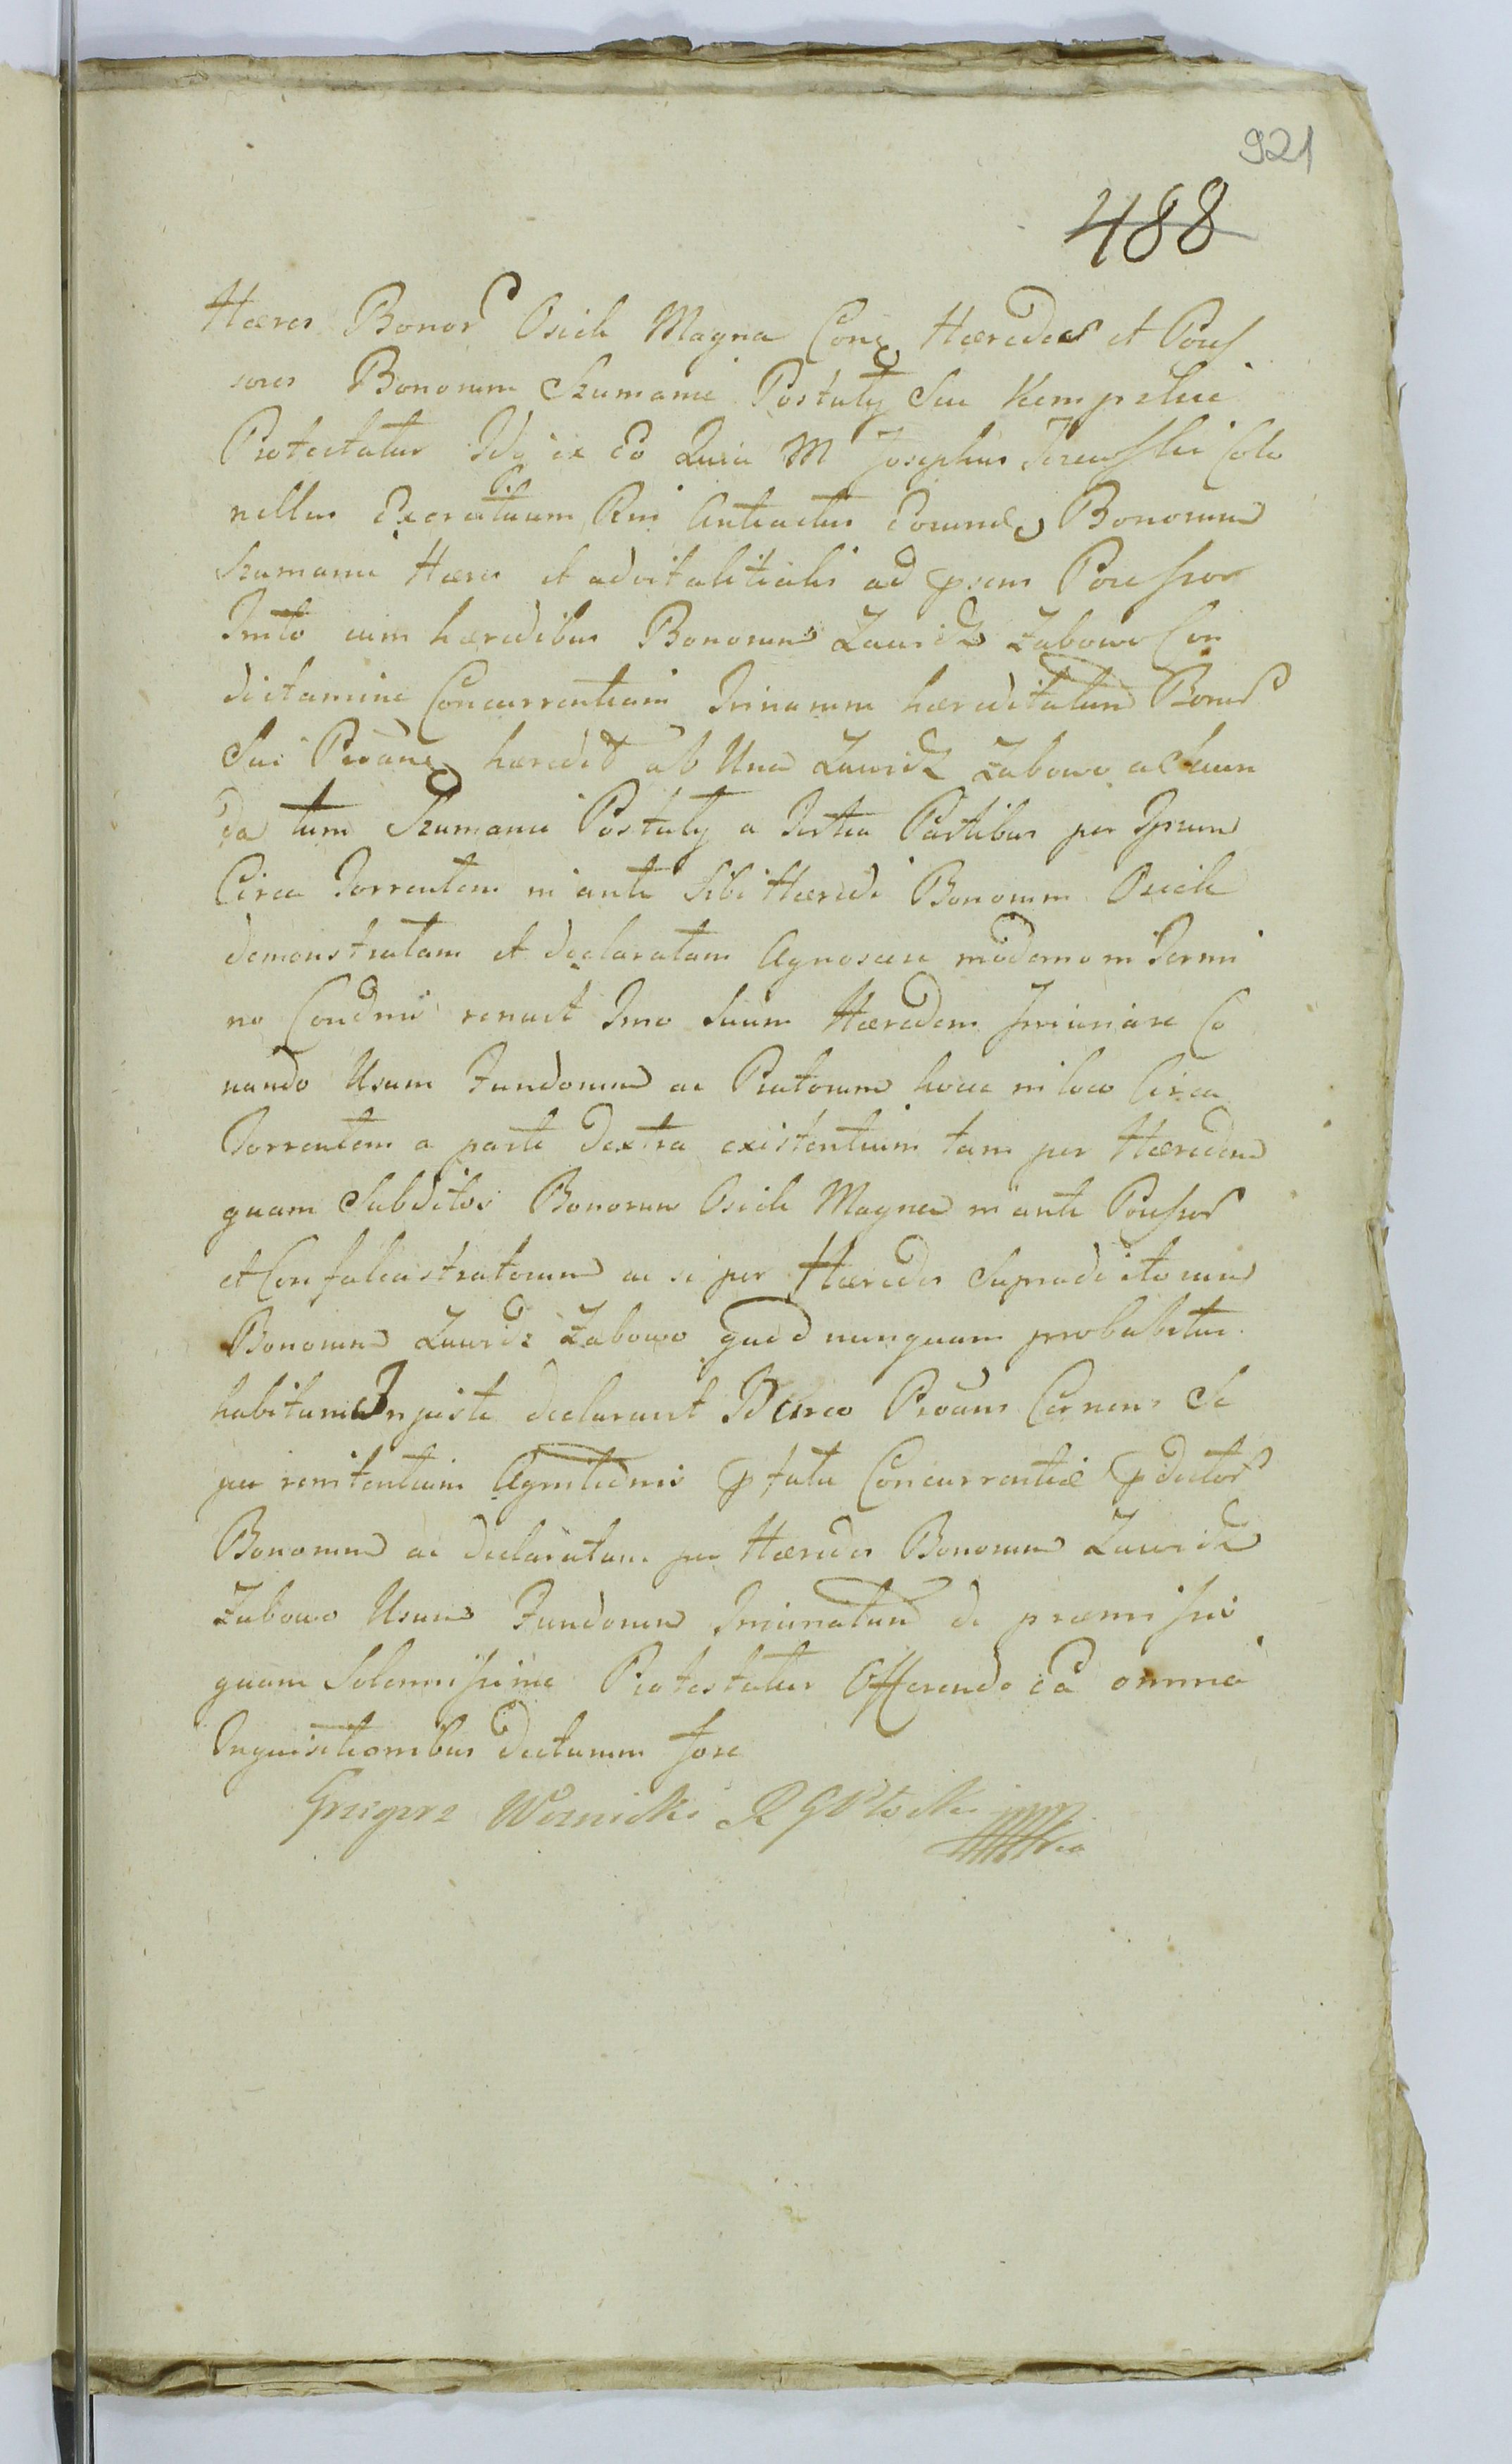 921
488
Hæres Bonor Osiek Magna Conq Hæredes et Poss
sores Bonorum Szumanie Postuly Seu Kempskie
Protestatur Idq ex Eo Quia M Josephus Colo
nellus Exercituum Rni Anteactus Eorund Bonorum
Szumanie Hæres et advitalitialis ad præsens Possessor
cum hæredibus Bonorum Zawidz Zabowo Con
dictamine Concurrentiam Trinarum hæreditatum Bonor
Sui Protane hæredit ab Una Zawidz Zabowo a Secun
da tum Szumanie Postuly a Tertia Partibus per Ipsum
Circa Torrentem in ante Sibi Hæredi Bonorum Osiek
demonstratam et declaratam Agnoscere moderno in Termi
no Condnis renuit Imo Suum Hæredem Injuriare Co
nando Usum Fundorum ac Pratorum hocce in loco Circa
Torrentem a parte dextra existentium tam per Hæredem
quam Subditos Bonorum Osiek Magna in ante Possessor
et Confalcastratorum ac si per Hæredes Supradictorum
Bonorum Zawidz Zabowo quod nunquam probabitur
habitum Injuste declaravit Protans Cernens Se
per renitentiam Agnitionis Concurrentiæ
Bonorum ac declaratum per Hæredes Bonorum Zawidz
Zabowo Usum Fundorum Injuriatum de præmissis
quam Solennissime Protestatur Offerendo ea omnia
Inquisitionibus docturum fore
Grzegorz Woznicki R G Płocki mpp